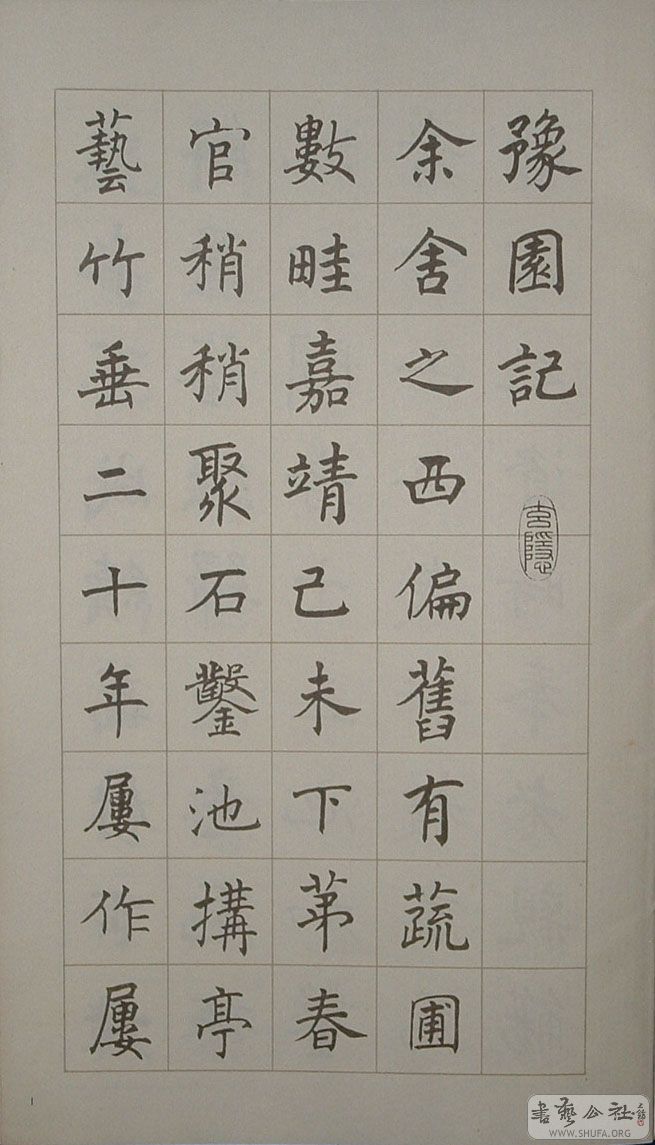 豫園記
余舍之西偏舊有蔬圃
數畦嘉靖己未下苐春
官稍稍聚石鑿池搆亭
藝竹垂二十年屢作屢
1
书艺公社
WWW.SHUFA.ORG